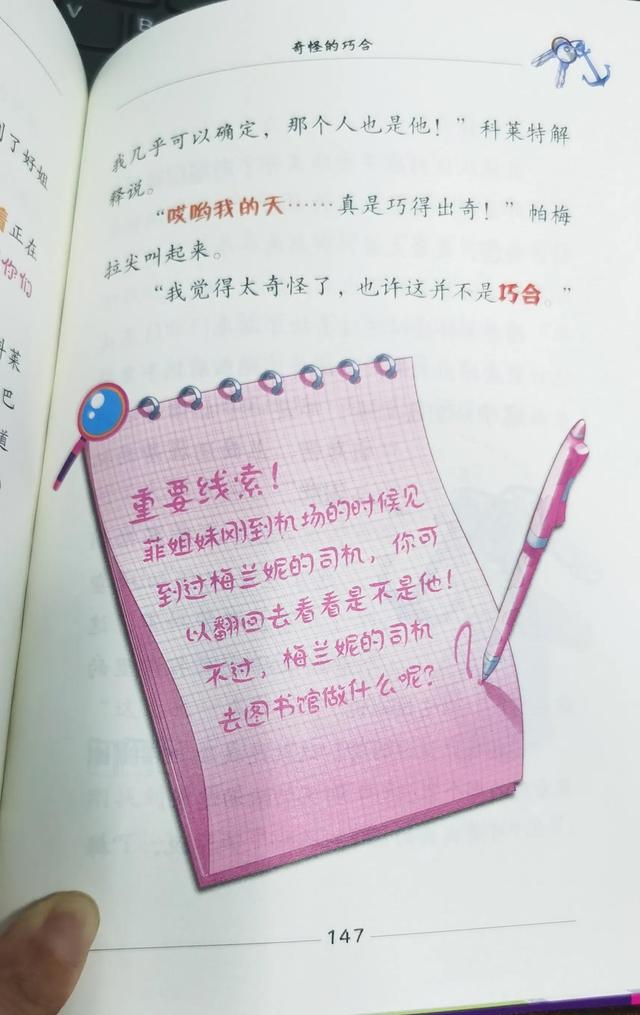 V
B
到了好姐
正在
你们
科莱
巴
道
奇怪的巧合
我几乎可以确定，那个人也是他！”科莱特解
释说。
“哎哟我的天……真是巧得出奇！”帕梅
拉尖叫起来。
“我觉得太奇怪了，也许这并不是巧合。”
重要线索！
菲姐妹刚到机场的时候见
到过梅兰妮的司机，你可
以翻回去看看是不是他！
不过，梅兰妮的司机
去图书馆做什么呢？
147